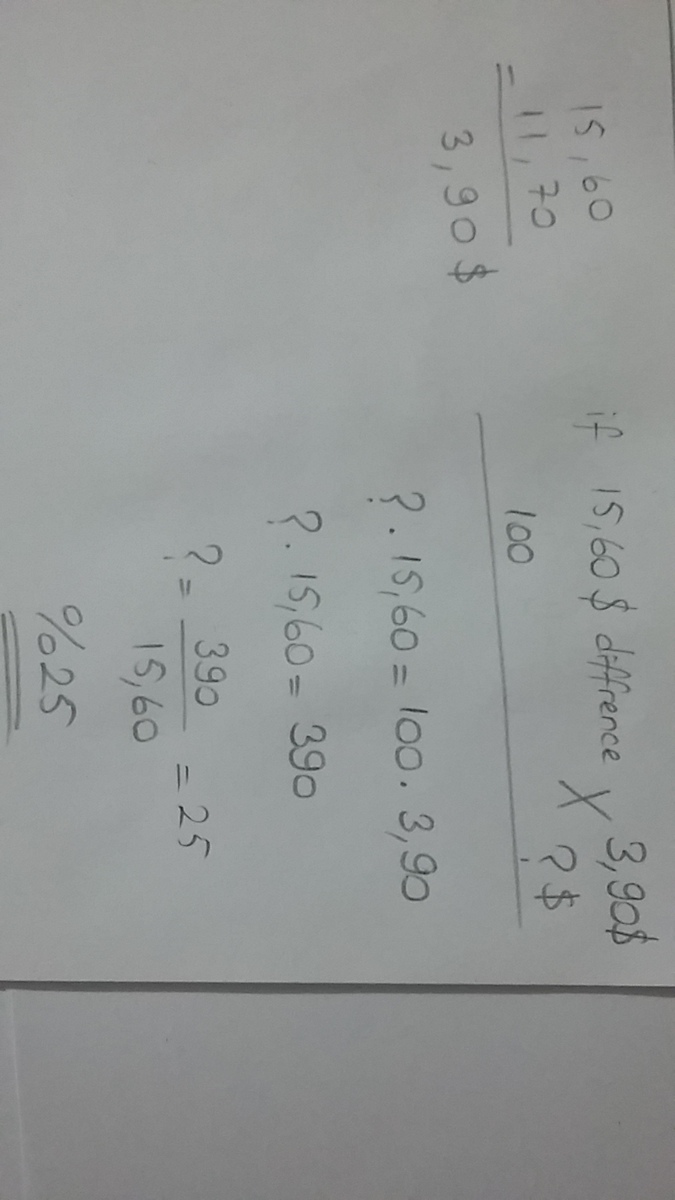 15,60
- 11,70
3,90 $
if 15,60 $ diffrence 3,90$
100 X ? $
? . 15,60 = 100 . 3,90
? . 15,60 = 390
? = 390
15,60 = 25
%25